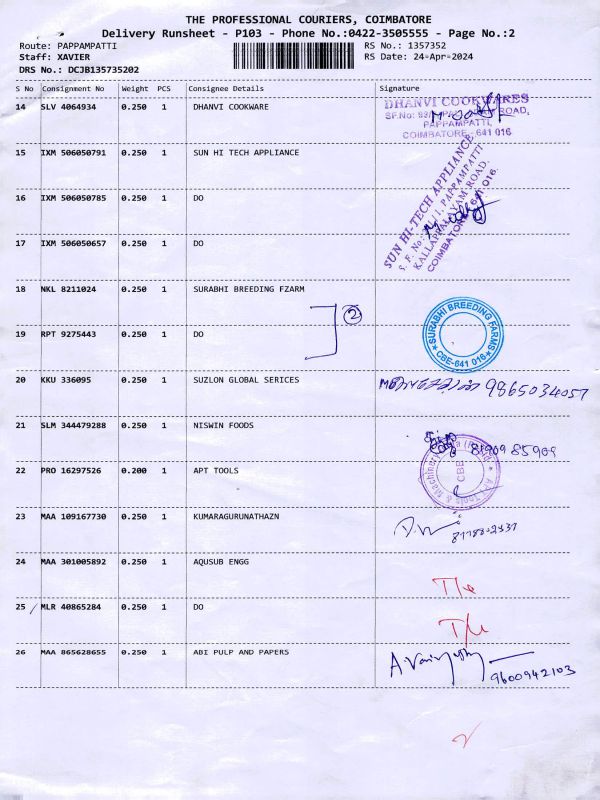 THE PROFESSIONAL COURIERS, COIMBATORE
Delivery Runsheet - P103 - Phone No.:0422-3505555 - Page No.:2
Route: PAPPAMPATTI
RS No.: 1357352
Staff: XAVIER
RS Date: 24-Apr-2024
DRS No.: DCJB135735202
S No Consignment No Weight PCS Consignee Details Signature
14 SLV 4064934 0.250 1 DHANVI COOKWARE
DHANVI COOKWARES
ROAD,
PAPPAMPATTI,
COIMBATORE - 641 016
15 IXM 506050791 0.250 1 SUN HI TECH APPLIANCE
SUN HI-TECH APPLIANCE
PAPPAMPATTI
ROAD.
16 IXM 506050785 0.250 1 DO
17 IXM 506050657 0.250 1 DO
18 NKL 8211024 0.250 1 SURABHI BREEDING FZARM
2
SURABHI BREEDING FARMS
CBE-641 016
19 RPT 9275443 0.250 1 DO
20 KKU 336095 0.250 1 SUZLON GLOBAL SERICES
9865034057
21 SLM 344479288 0.250 1 NISWIN FOODS
81909 85909
22 PRO 16297526 0.200 1 APT TOOLS
APT Tools & Machinery
CBE
23 MAA 109167730 0.250 1 KUMARAGURUNATHAZN
24 MAA 301005892 0.250 1 AQUSUB ENGG
25 MLR 40865284 0.250 1 DO
26 MAA 865628655 0.250 1 ABI PULP AND PAPERS
9600942103